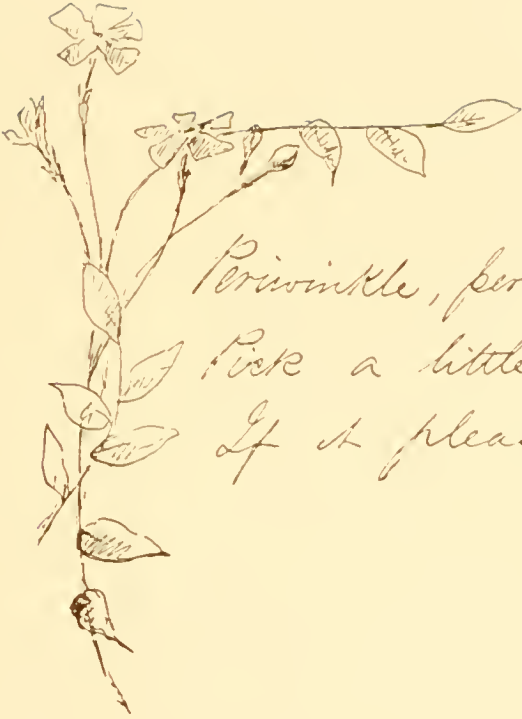 Periwinkle, per
Pick a little
If it pleas